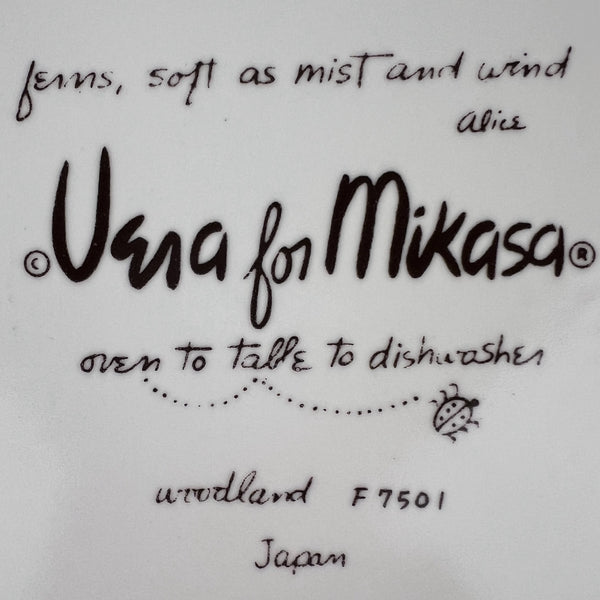 ferns, soft as mist and wind
Alice
© Vera for Mikasa ®
oven to table to dishwasher
woodland F 7501
Japan